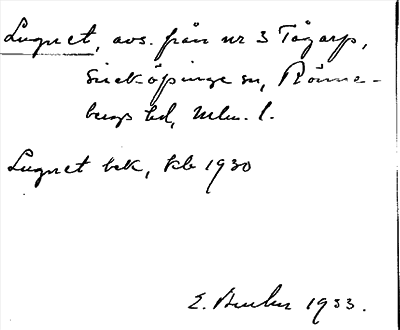 Lugnet, avs. från nr 3 Tågarp,
Sireköpinge sn, Rönne-
bergs hd, Mlm. l.
Lugnet bek, kb 1930
E. 1933.